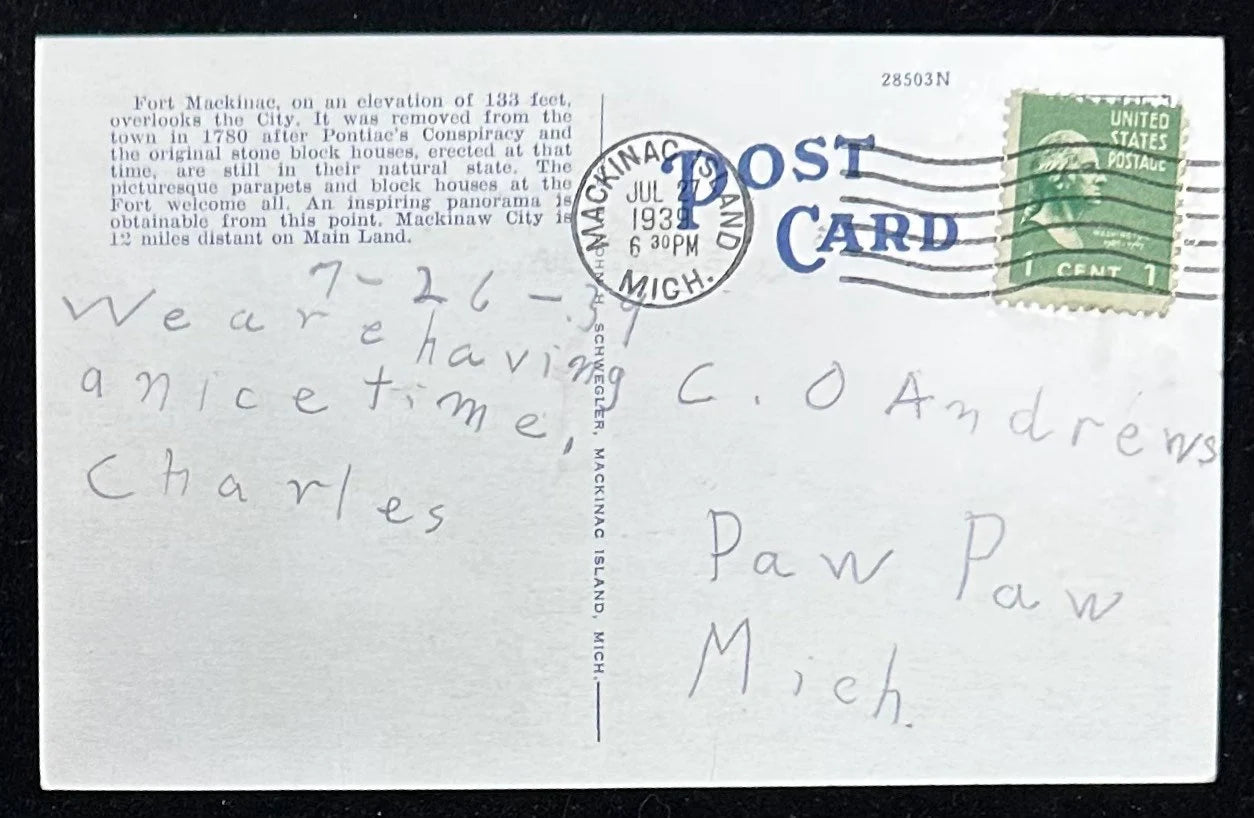 28503N
Fort Mackinac, on an elevation of 133 feet,
overlooks the City. It was removed from the
town in 1780 after Pontiac's Conspiracy and
the original stone block houses, erected at that
time, are still in their natural state. The
picturesque parapets and block houses at the
Fort welcome all. An inspiring panorama is
obtainable from this point. Mackinaw City is
12 miles distant on Main Land.
POST
CARD
MACKINAC ISLAND
JUL 27
1939
6 30PM
MICH.
UNITED
STATES
POSTAGE
WASHINGTON
1 CENT 1
7-26-39
We are having
a nice time,
Charles
SCHWEGLER, MACKINAC ISLAND, MICH.
C. O Andrews
Paw Paw
Mich.